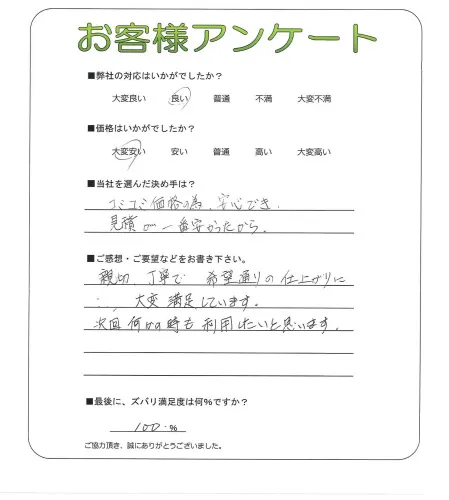 お客様アンケート
■弊社の対応はいかがでしたか？
大変良い 良い 普通 不満 大変不満
■価格はいかがでしたか？
大変安い 安い 普通 高い 大変高い
■当社を選んだ決め手は？
コミコミ価格の為、安心でき、
見積 一番安かったから。
■ご感想・ご要望などをお書き下さい。
親切、丁寧で 希望通りの仕上がりに
大変満足しています。
次回何かの時も利用したいと思います。
■最後に、ズバリ満足度は何%ですか？
100 %
ご協力頂き、誠にありがとうございました。